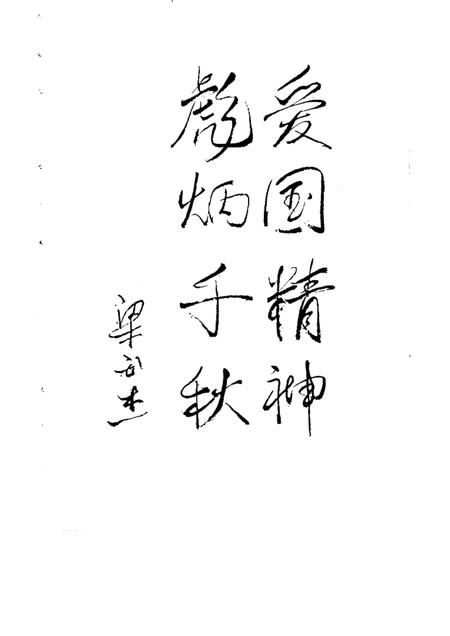 爱国精神
彪炳千秋
梁云杰